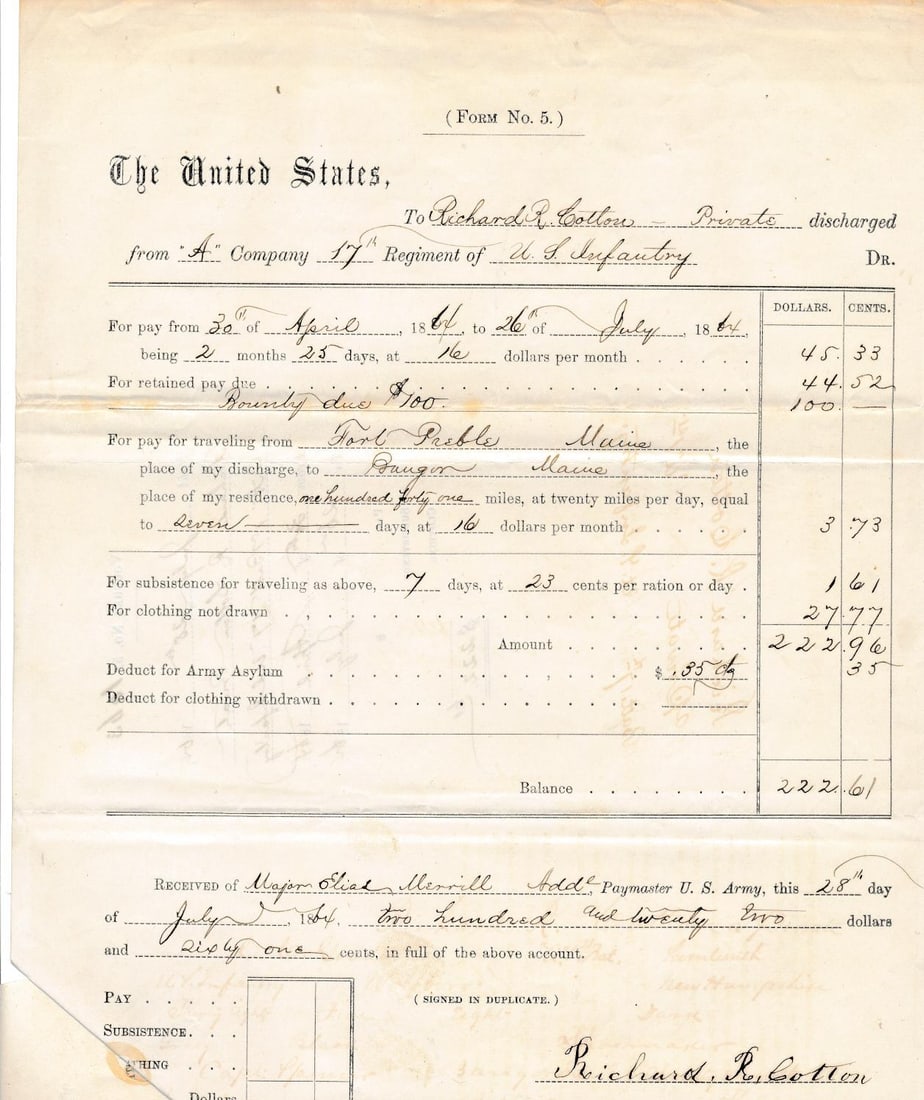 (FORM NO. 5.)
The United States,
To Richard R. Cotton – Private discharged
from "A" Company 17th Regiment of U. S. Infantry DR.
DOLLARS. CENTS.
For pay from 30th of April, 1864, to 26th of July, 1864,
being 2 months 25 days, at 16 dollars per month . . . . . . 45. 33
For retained pay due . . . . . . 44. 52
Bounty due $100. 100. —
For pay for traveling from Fort Preble Maine, the
place of my discharge, to Bangor Maine, the
place of my residence, one hundred forty one miles, at twenty miles per day, equal
to seven days, at 16 dollars per month . . . . . . 3 .73
For subsistence for traveling as above, 7 days, at 23 cents per ration or day . 1 61
For clothing not drawn . . . . . . 27 .77
Amount . . . . . . 222.96
Deduct for Army Asylum . . . . . . $ .35 cts 35
Deduct for clothing withdrawn . . . . . .
Balance . . . . . . 222.61
RECEIVED of Major Elias Merrill Addl, Paymaster U. S. Army, this 28th day
of July, 1864, two hundred and twenty two dollars
and sixty one cents, in full of the above account.
PAY . . . . . (SIGNED IN DUPLICATE.)
SUBSISTENCE. . .
THING . . .
Richard. R. Cotton
Dollars